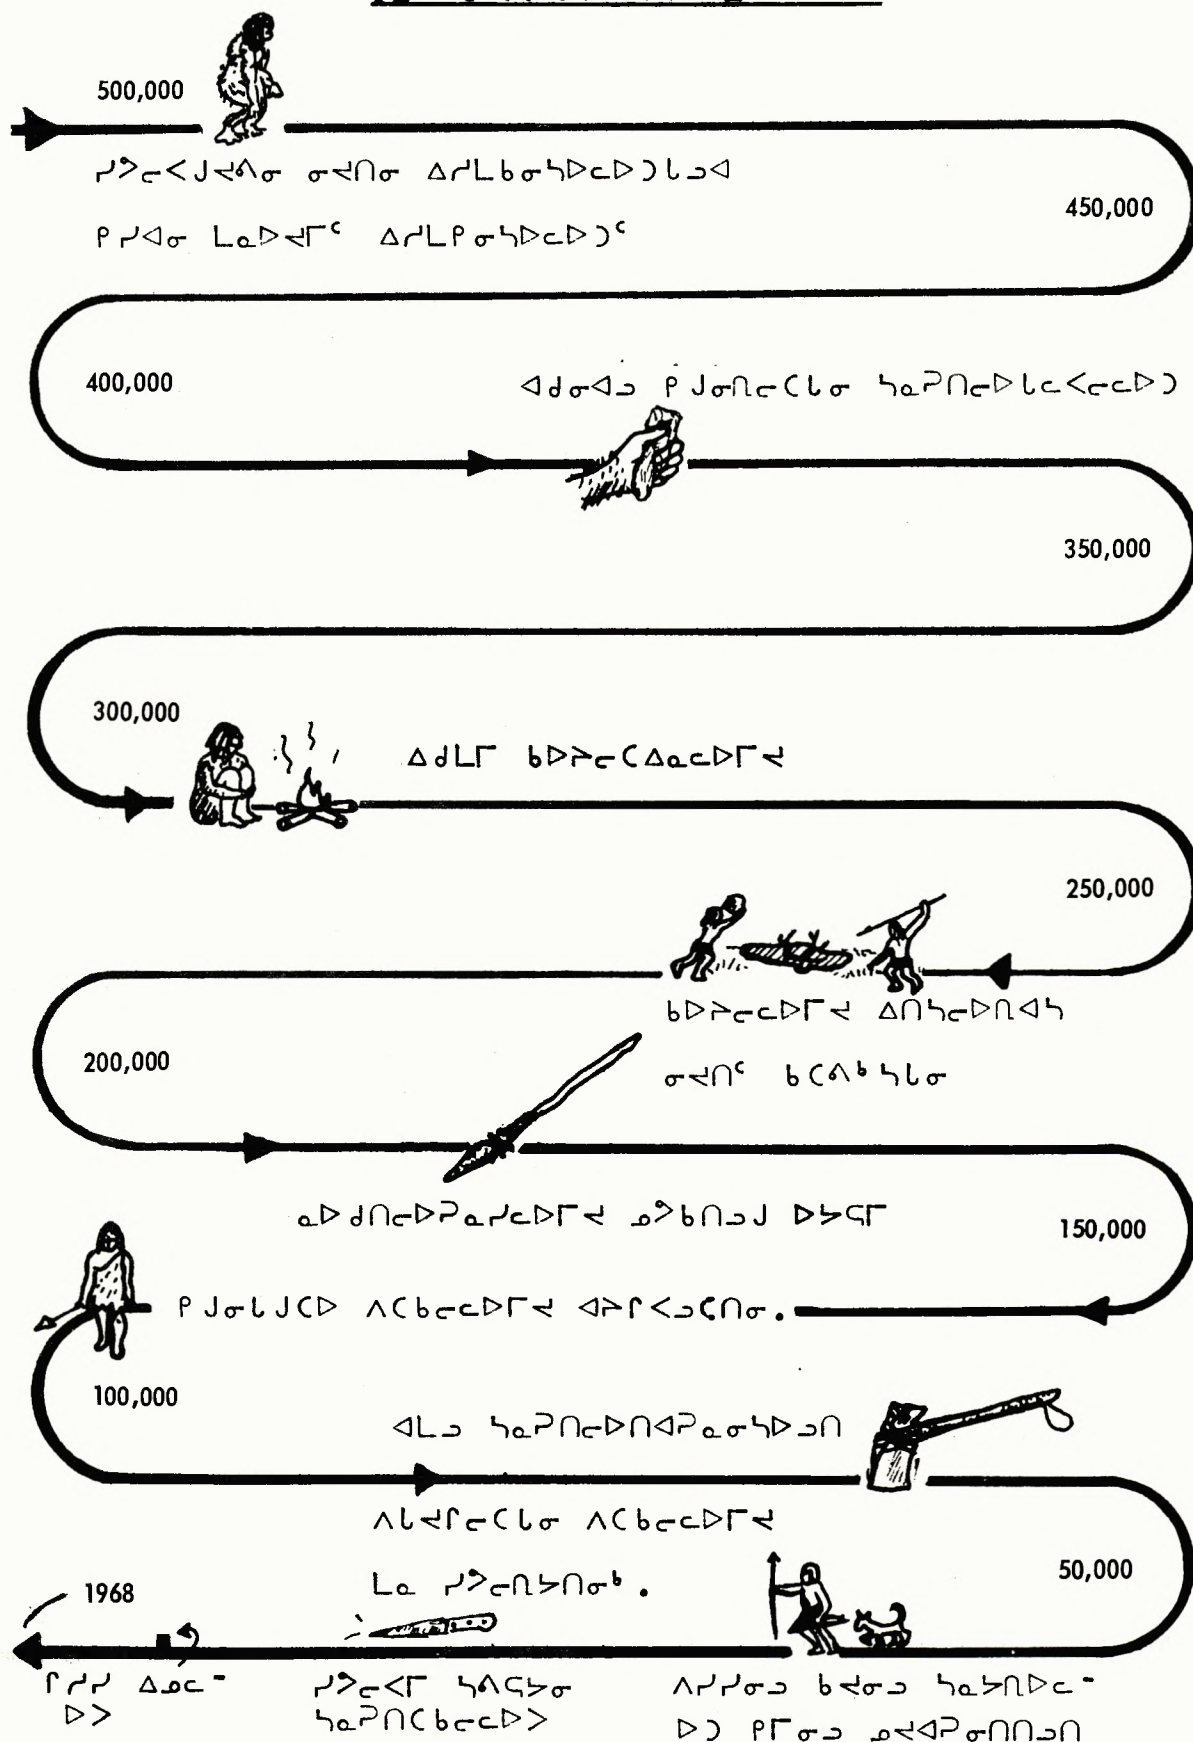 500,000
ᓯᕗᓕᐸᒍᔪᕕᓂ ᓂᔪᑎᓂ ᐃᓯᒪᑲᓂᓴᐅᓚᐅᑐᒐᓗᐊ
450,000
ᑭᓯᐊᓂ ᒪᓇᐅᔪᒥᑦ ᐃᓯᒪᑭᓂᓴᐅᓚᐅᑐᑦ
400,000
ᐊᑯᓂᐊᓗ ᑭᒍᓂᑎᓕᑕᒐᓂ ᓴᓇᕈᑎᓕᐅᒐᓚᐸᓕᓚᐅᑐ
350,000
300,000
ᐃᑯᒪᒥ ᑲᐅᔨᓕᑕᐃᓇᓚᐅᒥᔪ
250,000
ᑲᐅᔨᓕᓚᐅᒥᔪ ᐃᑎᓴᓕᐅᑎᐊᓴ
200,000
ᓂᔪᑎᑦ ᑲᑕᕕᒃᓴᒐᓂ
ᓇᐅᑯᑎᓕᐅᕈᓇᓯᓚᐅᒥᔪ ᓄᕗᑲᑎᓗᒍ ᐅᔭᕋᒥ
150,000
ᑭᒍᓂᒐᒍᑕᐅ ᐱᑕᑲᓕᓚᐅᒥᔪ ᐊᔨᒋᐸᓗᕋᑎᓂ.
100,000
ᐊᒪᓗ ᓴᓇᕈᑎᓕᐅᑎᐊᕈᓇᓂᓴᐅᓗᑎ
ᐱᒐᔪᒋᓕᑕᒐᓂ ᐱᑕᑲᓕᓚᐅᒥᔪ
50,000
ᒪᓇ ᓯᕗᓕᑎᔭᑎᓂᒃ.
1968
ᒋᓯᓯ ᐃᓄᓚ-
ᐅᐳ
ᓯᕗᓕᐸᒥ ᓴᕕᕋᔭᓂ
ᓴᓇᕈᑎᑕᑲᓕᓚᐅᐳ
ᐱᓯᓯᓂᓗ ᑲᔪᓂᓗ ᓴᓇᔭᑎᐅᓚ-
ᐅᑐ ᑭᒥᓂᓗ ᓄᔪᐊᕈᓂᑎᑎᓗᑎ